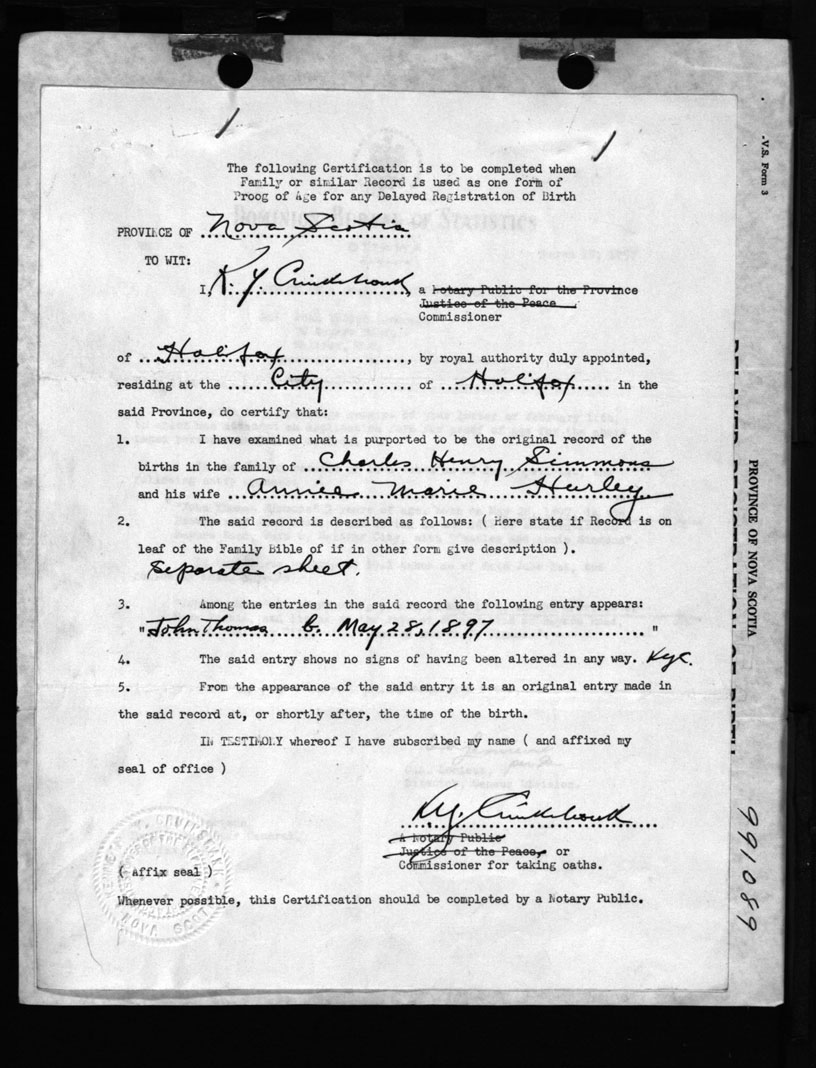 The following Certification is to be completed when
Family or similar Record is used as one form of
Proog of Age for any Delayed Registration of Birth
PROVINCE OF Nova Scotia
TO WIT:
I, K. Y. Cruikshank, a Notary Public for the Province
Justice of the Peace
Commissioner
of Halifax, by royal authority duly appointed,
residing at the City of Halifax in the
said Province, do certify that:
1. I have examined what is purported to be the original record of the
births in the family of Charles Henry Simmons
and his wife Annie Marie Hurley
2. The said record is described as follows: ( Here state if Record is on
leaf of the Family Bible of if in other form give description ).
Separate sheet.
3. Among the entries in the said record the following entry appears:
" John Thomas b. May 28, 1897 "
4. The said entry shows no signs of having been altered in any way. KyC.
5. From the appearance of the said entry it is an original entry made in
the said record at, or shortly after, the time of the birth.
IN TESTIMONY whereof I have subscribed my name ( and affixed my
seal of office )
K.Y. Cruikshank
A Notary Public
Justice of the Peace, or
Commissioner for taking oaths.
( Affix seal )
NOVA SCOTIA
Whenever possible, this Certification should be completed by a Notary Public.
V.S. Form 3
PROVINCE OF NOVA SCOTIA
DELAYED REGISTRATION OF BIRTH
991089